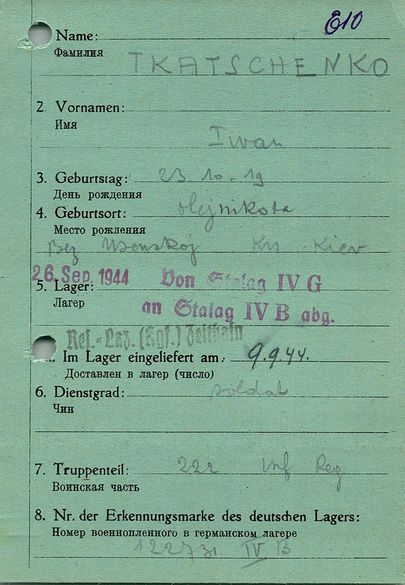 610
Name:
Фамилия
TKATSCHENKO
2. Vornamen:
Имя
Iwan
3. Geburtstag: 23 10. 19
День рождения
4. Geburtsort: Olejnikota
Место рождения
Bez Usenskoj Krs - Kiev
26. Sep. 1944 Von Stalag IV G
5. Lager:
Лагер
an Stalag IV B abg.
Res.-Laz. (Kgf.) Zeithain
Im Lager eingeliefert am: 9.9.44.
Доставлен в лагер (число)
6. Dienstgrad: soldat
Чин
7. Truppenteil: 222 Inf Reg
Воинская часть
8. Nr. der Erkennungsmarke des deutschen Lagers:
Номер военнопленного в германском лагере
IV B